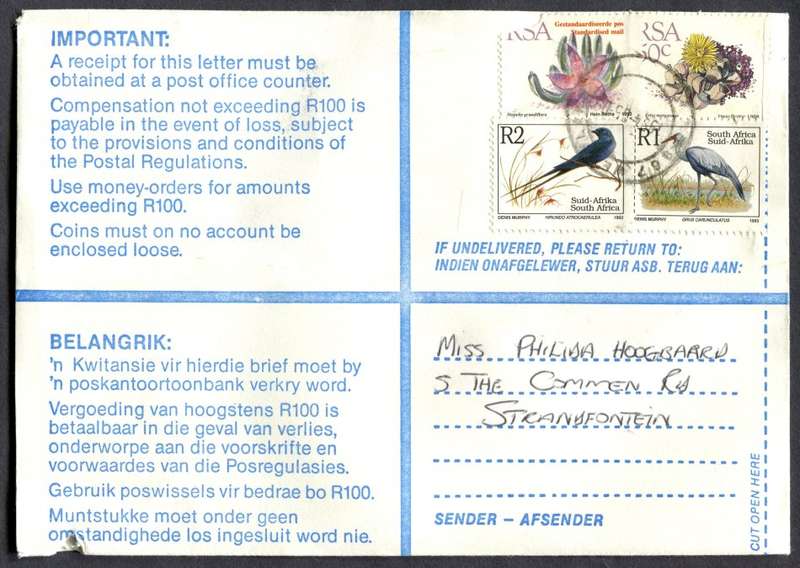 IMPORTANT:
A receipt for this letter must be
obtained at a post office counter.
Compensation not exceeding R100 is
payable in the event of loss, subject
to the provisions and conditions of
the Postal Regulations.
Use money-orders for amounts
exceeding R100.
Coins must on no account be
enclosed loose.
RSA
Gestandaardiseerde pos
Standardised mail
Hein Botha 1993
RSA
R2
Suid-Afrika
South Africa
DENIS MURPHY HIRUNDO ATROCAERULEA 1993
R1
South Africa
Suid-Afrika
DENIS MURPHY GRUS CARUNCULATUS 1993
IF UNDELIVERED, PLEASE RETURN TO:
INDIEN ONAFGELEWER, STUUR ASB. TERUG AAN:
BELANGRIK:
'n Kwitansie vir hierdie brief moet by
'n poskantoortoonbank verkry word.
Vergoeding van hoogstens R100 is
betaalbaar in die geval van verlies,
onderworpe aan die voorskrifte en
voorwaardes van die Posregulasies.
Gebruik poswissels vir bedrae bo R100.
Muntstukke moet onder geen
omstandighede los ingesluit word nie.
MISS PHILIDA HOOGBAARD
5 THE COMMEN RD
STRANDFONTEIN
SENDER – AFSENDER
CUT OPEN HERE